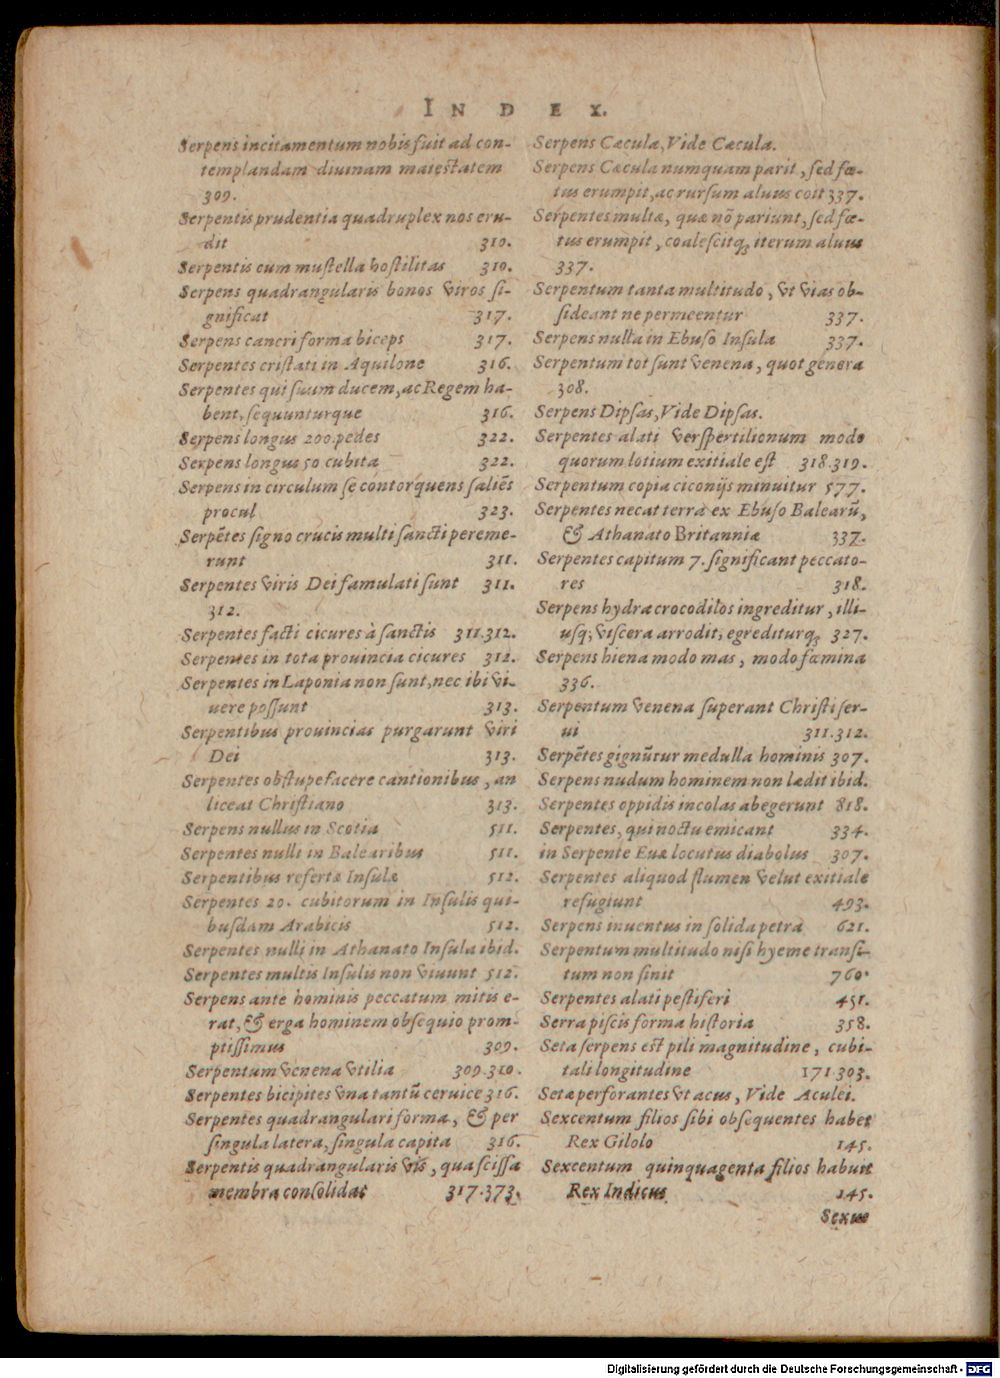 INDEX.
Serpens incitamentum nobis fuit ad con-
templandam diuinam maiestatem
309.
Serpentis prudentia quadruplex nos eru-
dit 310.
Serpentis cum mustella hostilitas 310.
Serpens quadrangularis bonos viros si-
gnificat 317.
Serpens cancri forma biceps 317.
Serpentes cristati in Aquilone 316.
Serpentes qui suum ducem, ac Regem ha-
bent, sequunturque 316.
Serpens longus 200. pedes 322.
Serpens longus 50 cubita 322.
Serpens in circulum se contorquens saliẽs
procul 323.
Serpẽtes signo crucis multi sancti pereme-
runt 311.
Serpentes viris Dei famulati sunt 311.
312.
Serpentes facti cicures à sanctis 311.312.
Serpentes in tota prouincia cicures 312.
Serpentes in Laponia non sunt, nec ibi vi-
uere possunt 313.
Serpentibus prouincias purgarunt viri
Dei 313.
Serpentes obstupefacere cantionibus, an
liceat Christiano 313.
Serpens nullus in Scotia 511.
Serpentes nulli in Balearibus 511.
Serpentibus refertæ Insulæ 512.
Serpentes 20. cubitorum in Insulis qui-
busdam Arabicis 512.
Serpentes nulli in Athanato Insula ibid.
Serpentes multis Insulis non viuunt 512.
Serpens ante hominis peccatum mitis e-
rat, & erga hominem obsequio prom-
ptissimus 309.
Serpentum venena vtilia 309.310.
Serpentes bicipites vna tantũ ceruice 316.
Serpentes quadrangulari forma, & per
singula latera, singula capita 316.
Serpentis quadrangularis vis, qua scissa
membra consolidat 317.373.
Serpens Cæculæ, Vide Cæcula.
Serpens Cæcula numquam parit, sed fœ-
tus erumpit, ac rursum aluus coit 337.
Serpentes multæ, quæ nõ pariunt, sed fœ-
tus erumpit, coalescitq; iterum aluus
337.
Serpentum tanta multitudo, vt vias ob-
sideant ne permeentur 337.
Serpens nulla in Ebuso Insula 337.
Serpentum tot sunt venena, quot genera
308.
Serpens Dipsas, Vide Dipsas.
Serpentes alati verspertilionum modo
quorum lotium exitiale est 318.319.
Serpentum copia ciconijs minuitur 577.
Serpentes necat terra ex Ebuso Balearũ,
& Athanato Britanniæ 337.
Serpentes capitum 7. significant peccato-
res 318.
Serpens hydra crocodilos ingreditur, illi-
usq; viscera arrodit; egrediturq; 327.
Serpens hiena modo mas, modo fœmina
336.
Serpentum venena superant Christi ser-
ui 311.312.
Serpẽtes gignũtur medulla hominis 307.
Serpens nudum hominem non lædit ibid.
Serpentes oppidis incolas abegerunt 818.
Serpentes, qui noctu emicant 334.
in Serpente Euæ locutus diabolus 307.
Serpentes aliquod flumen velut exitiale
refugiunt 493.
Serpens inuentus in solida petra 621.
Serpentum multitudo nisi hyeme transi-
tum non sinit 760.
Serpentes alati pestiferi 451.
Serra piscis forma historia 358.
Seta serpens est pili magnitudine, cubi-
tali longitudine 171.303.
Setæ perforantes vt acus, Vide Aculei.
Sexcentum filios sibi obsequentes habet
Rex Gilolo 145.
Sexcentum quinquagenta filios habuit
Rex Indicus 145.
Sexus
Digitalisierung gefördert durch die Deutsche Forschungsgemeinschaft - DFG